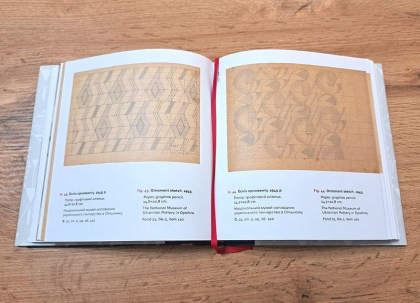 Іл. 43. Ескіз орнаменту. 1945 р.
Папір, графітний олівець.
Національний музей-заповідник
українського гончарства в Опішному.
Fig. 43. Ornament sketch. 1945.
Paper, graphite pencil.
The National Museum of
Ukrainian Pottery in Opishne.
Іл. 44. Ескіз орнаменту. 1945 р.
Папір, графітний олівець.
Національний музей-заповідник
українського гончарства в Опішному.
Fig. 44. Ornament sketch. 1945.
Paper, graphite pencil.
The National Museum of
Ukrainian Pottery in Opishne.